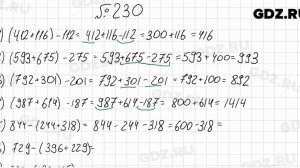 №230
GDZ.RU
) (412+116) -112= 412+116-112 =300+116 =416
) (593+675) -275= 593+675-275 =593+400=993
) (792+301) -201= 792+301-201 =792+100= 892
) (987+614) -187= 987+614-187= 800+614= 1414
) 844-(244+318)= 844-244-318=600-318=
) 729- (396+229)=
GDZ.RU